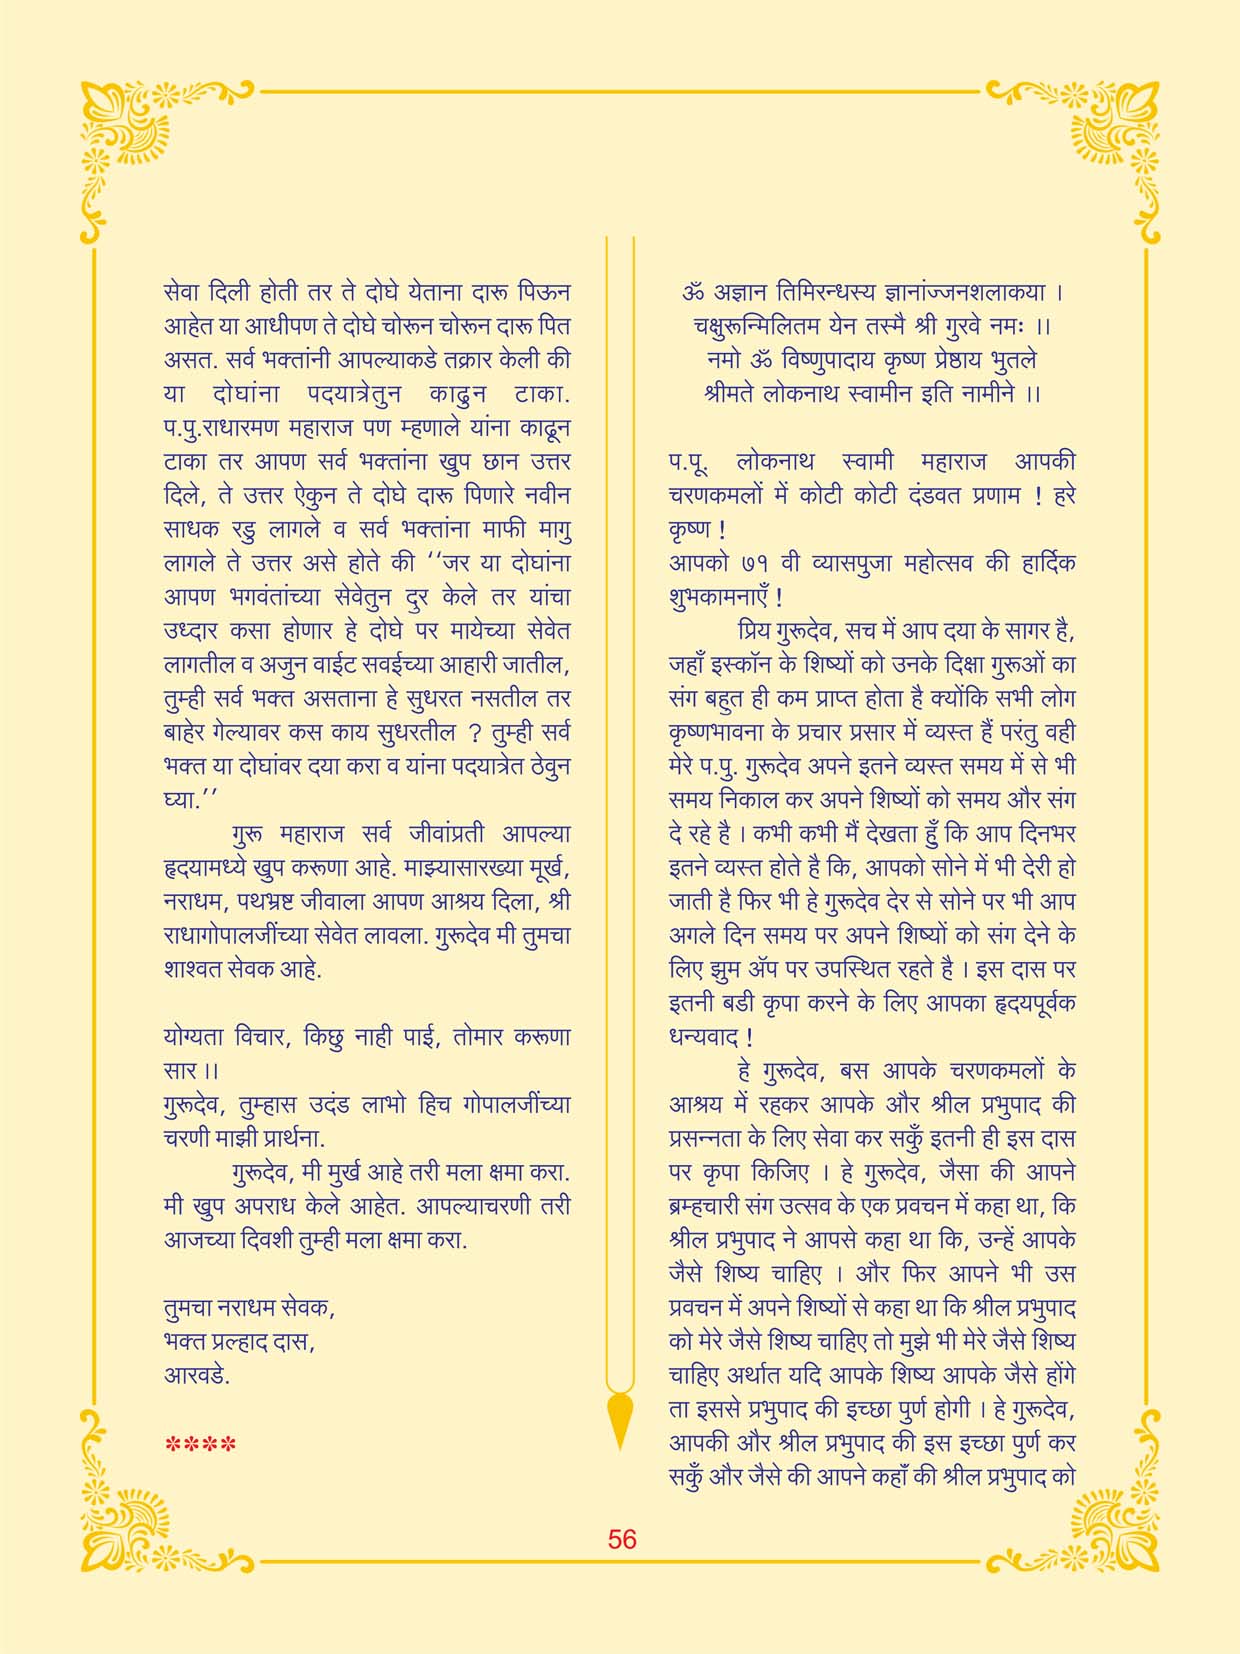 सेवा दिली होती तर ते दोघे येताना दारू पिऊन
आहेत या आधीपण ते दोघे चोरून चोरून दारू पित
असत. सर्व भक्तांनी आपल्याकडे तक्रार केली की
या दोघांना पदयात्रेतुन काढुन टाका.
प.पु.राधारमण महाराज पण म्हणाले यांना काढून
टाका तर आपण सर्व भक्तांना खुप छान उत्तर
दिले, ते उत्तर ऐकुन ते दोघे दारू पिणारे नवीन
साधक रडु लागले व सर्व भक्तांना माफी मागु
लागले ते उत्तर असे होते की ‘‘जर या दोघांना
आपण भगवंतांच्या सेवेतुन दुर केले तर यांचा
उध्दार कसा होणार हे दोघे पर मायेच्या सेवेत
लागतील व अजुन वाईट सवईच्या आहारी जातील,
तुम्ही सर्व भक्त असताना हे सुधरत नसतील तर
बाहेर गेल्यावर कस काय सुधरतील ? तुम्ही सर्व
भक्त या दोघांवर दया करा व यांना पदयात्रेत ठेवुन
घ्या.’’
गुरू महाराज सर्व जीवांप्रती आपल्या
हृदयामध्ये खुप करूणा आहे. माझ्यासारख्या मूर्ख,
नराधम, पथभ्रष्ट जीवाला आपण आश्रय दिला, श्री
राधागोपालजींच्या सेवेत लावला. गुरूदेव मी तुमचा
शाश्वत सेवक आहे.
योग्यता विचार, किछु नाही पाई, तोमार करूणा
सार ।।
गुरूदेव, तुम्हास उदंड लाभो हिच गोपालजींच्या
चरणी माझी प्रार्थना.
गुरूदेव, मी मुर्ख आहे तरी मला क्षमा करा.
मी खुप अपराध केले आहेत. आपल्याचरणी तरी
आजच्या दिवशी तुम्ही मला क्षमा करा.
तुमचा नराधम सेवक,
भक्त प्रल्हाद दास,
आरवडे.
****
ॐ अज्ञान तिमिरन्धस्य ज्ञानांज्जनशलाकया ।
चक्षुरून्मिलितम येन तस्मै श्री गुरवे नमः ।।
नमो ॐ विष्णुपादाय कृष्ण प्रेष्ठाय भुतले
श्रीमते लोकनाथ स्वामीन इति नामीने ।।
प.पू. लोकनाथ स्वामी महाराज आपकी
चरणकमलों में कोटी कोटी दंडवत प्रणाम ! हरे
कृष्ण !
आपको ७१ वी व्यासपुजा महोत्सव की हार्दिक
शुभकामनाएँ !
प्रिय गुरूदेव, सच में आप दया के सागर है,
जहाँ इस्कॉन के शिष्यों को उनके दिक्षा गुरूओं का
संग बहुत ही कम प्राप्त होता है क्योंकि सभी लोग
कृष्णभावना के प्रचार प्रसार में व्यस्त हैं परंतु वही
मेरे प.पु. गुरूदेव अपने इतने व्यस्त समय में से भी
समय निकाल कर अपने शिष्यों को समय और संग
दे रहे है । कभी कभी मैं देखता हुँ कि आप दिनभर
इतने व्यस्त होते है कि, आपको सोने में भी देरी हो
जाती है फिर भी हे गुरूदेव देर से सोने पर भी आप
अगले दिन समय पर अपने शिष्यों को संग देने के
लिए झुम ॲप पर उपस्थित रहते है । इस दास पर
इतनी बडी कृपा करने के लिए आपका हृदयपूर्वक
धन्यवाद !
हे गुरूदेव, बस आपके चरणकमलों के
आश्रय में रहकर आपके और श्रील प्रभुपाद की
प्रसन्नता के लिए सेवा कर सकुँ इतनी ही इस दास
पर कृपा किजिए । हे गुरूदेव, जैसा की आपने
ब्रम्हचारी संग उत्सव के एक प्रवचन में कहा था, कि
श्रील प्रभुपाद ने आपसे कहा था कि, उन्हें आपके
जैसे शिष्य चाहिए । और फिर आपने भी उस
प्रवचन में अपने शिष्यों से कहा था कि श्रील प्रभुपाद
को मेरे जैसे शिष्य चाहिए तो मुझे भी मेरे जैसे शिष्य
चाहिए अर्थात यदि आपके शिष्य आपके जैसे होंगे
ता इससे प्रभुपाद की इच्छा पुर्ण होगी । हे गुरूदेव,
आपकी और श्रील प्रभुपाद की इस इच्छा पुर्ण कर
सकुँ और जैसे की आपने कहाँ की श्रील प्रभुपाद को
56